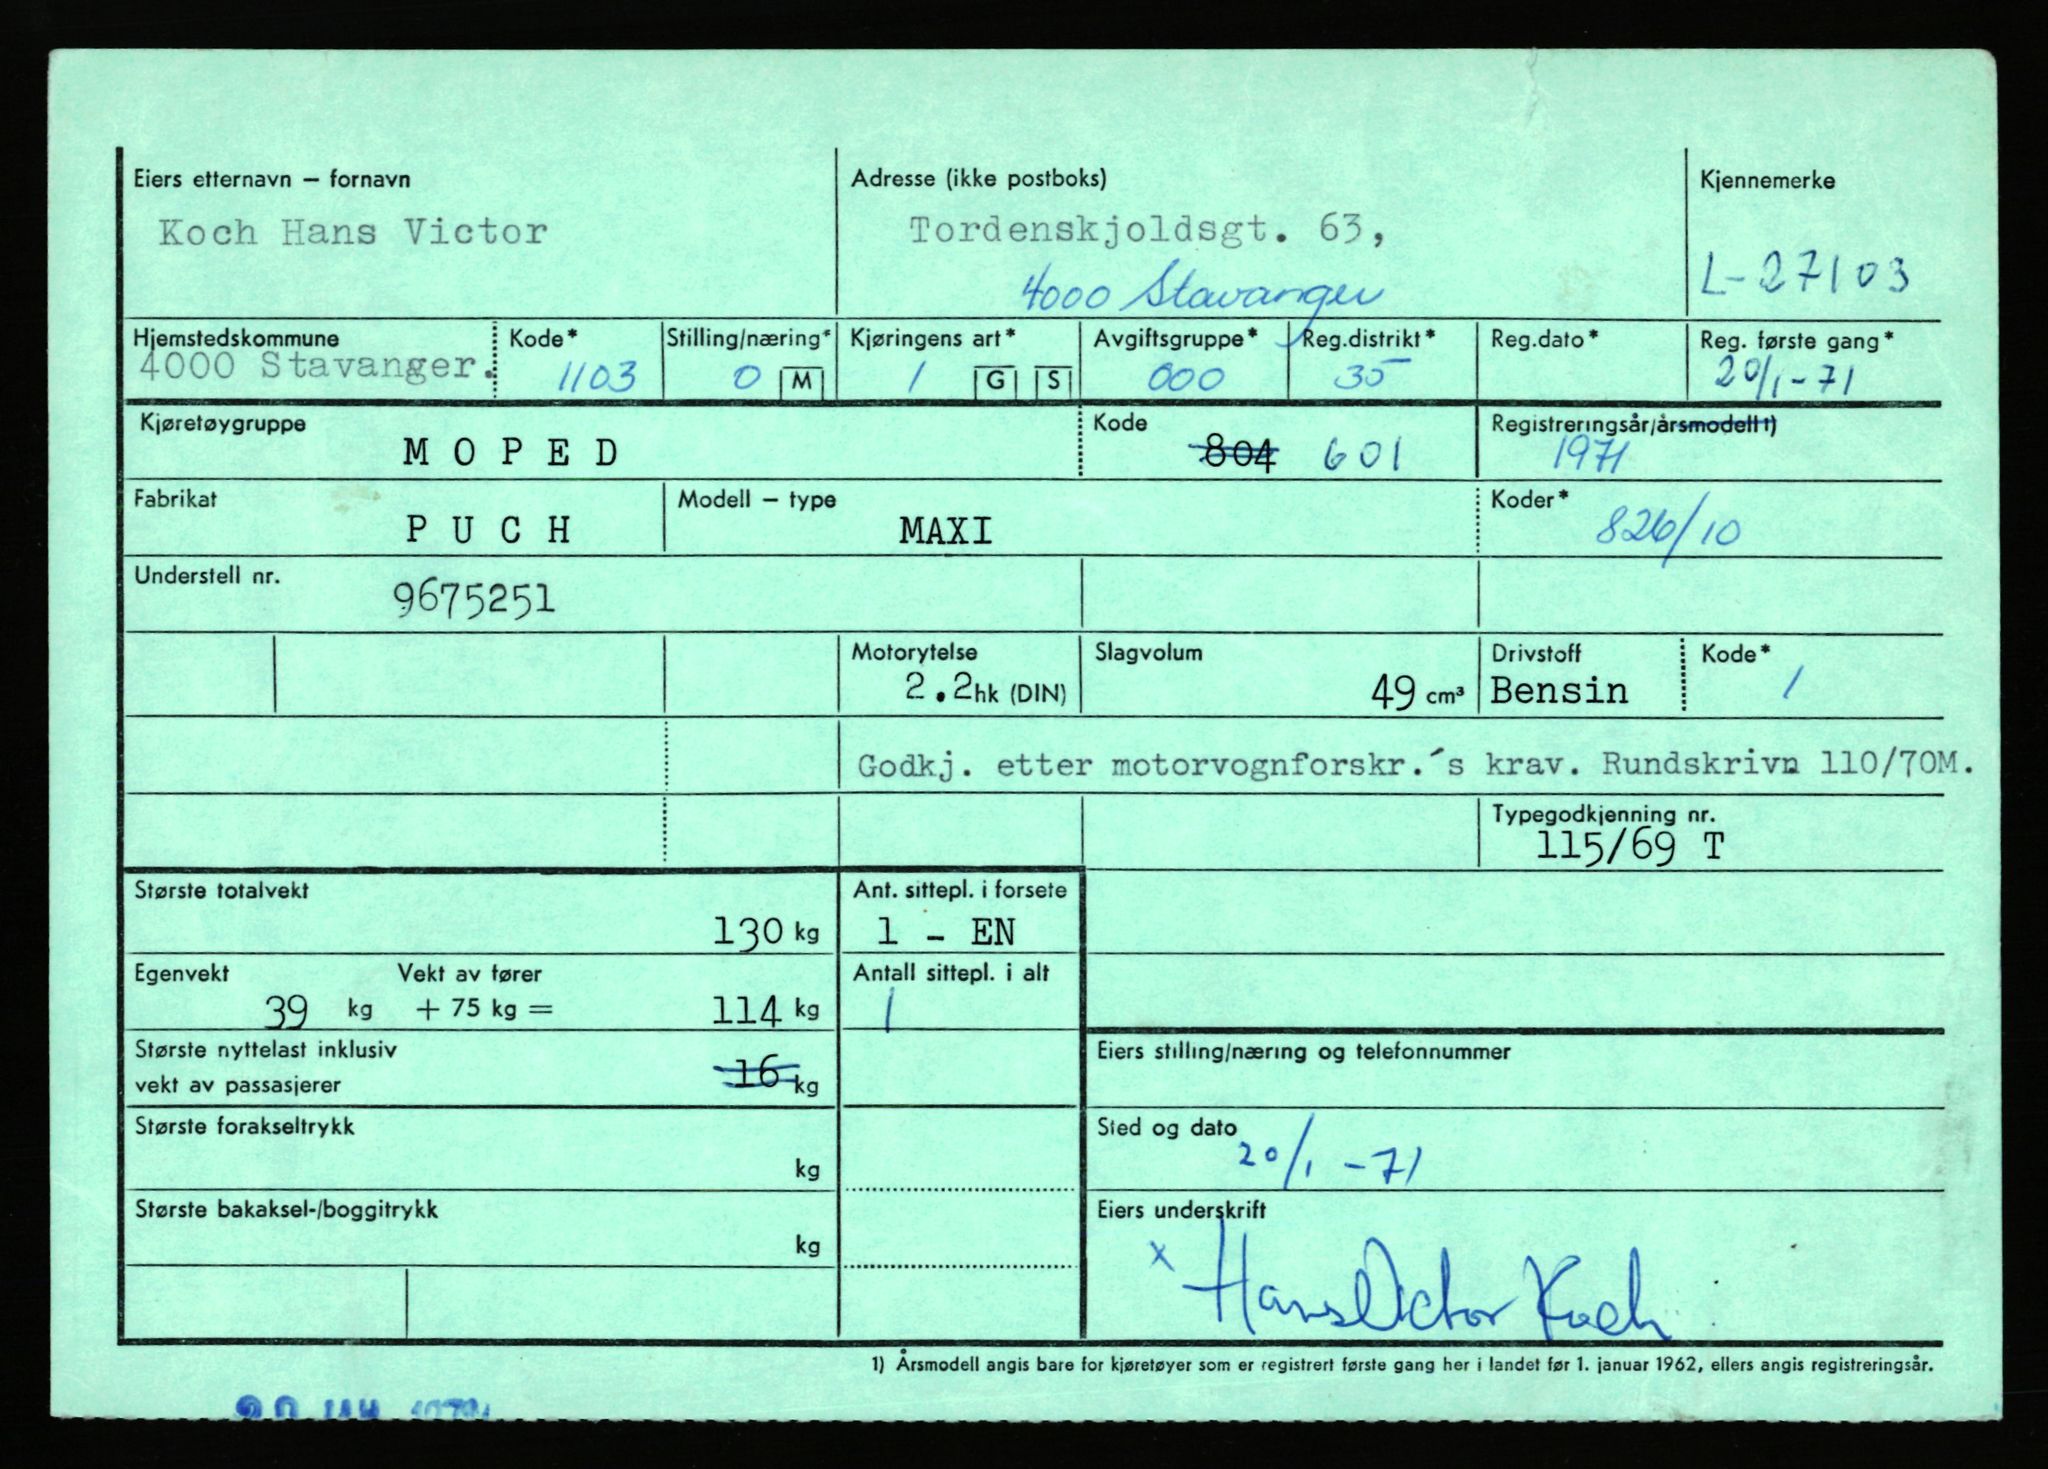 Eiers etternavn – fornavn
Koch Hans Victor
Adresse (ikke postboks)
Tordenskjoldsgt. 63,
4000 Stavanger
Kjennemerke
L-27103
Hjemstedskommune
4000 Stavanger.
Kode*
1103
Stilling/næring*
0 M
Kjøringens art*
1 G S
Avgiftsgruppe*
000
Reg.distrikt*
35
Reg.dato*
Reg. første gang*
20/1-71
Kjøretøygruppe
MOPED
Kode
804 601
Registreringsår/årsmodell 1)
1971
Fabrikat
PUCH
Modell – type
MAXI
Koder*
826/10
Understell nr.
9675251
Motorytelse
2.2 hk (DIN)
Slagvolum
49 cm³
Drivstoff
Bensin
Kode*
1
Godkj. etter motorvognforskr.´s krav. Rundskrivn 110/70M.
Typegodkjenning nr.
115/69 T
Største totalvekt
130 kg
Ant. sittepl. i forsete
1 - EN
Egenvekt Vekt av fører
39 kg + 75 kg = 114 kg
Antall sittepl. i alt
1
Største nyttelast inklusiv
vekt av passasjerer 16 kg
Eiers stilling/næring og telefonnummer
Største forakseltrykk
kg
Sted og dato
20/1-71
Største bakaksel-/boggitrykk
kg
Eiers underskrift
x Hans Victor Koch
1) Årsmodell angis bare for kjøretøyer som er registrert første gang her i landet før 1. januar 1962, ellers angis registreringsår.